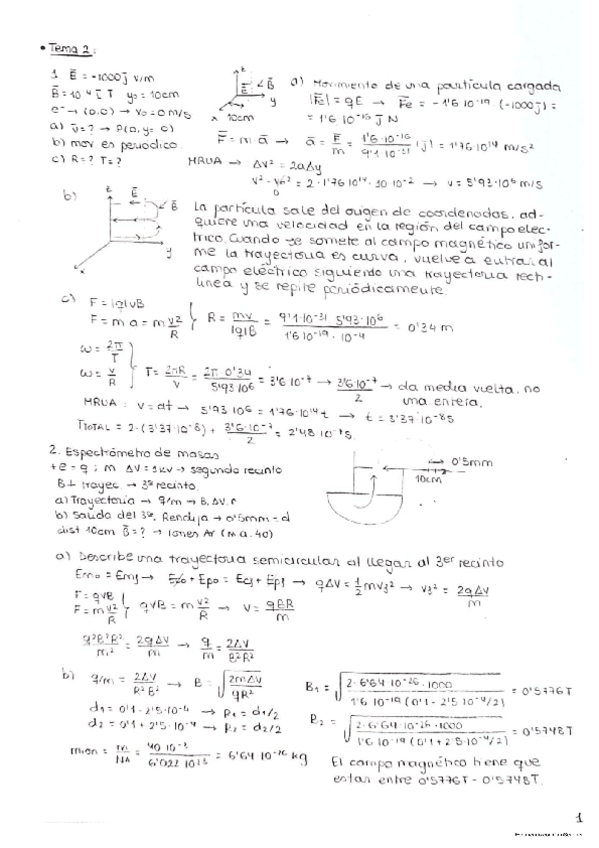 • Tema 2:
1. E⃗ = -1000 j⃗ V/m
B⃗ = 10⁻⁴ i⃗ T y₀ = 10cm
e⁻ → (0,0) → v₀ = 0 m/s
a) v⃗ = ? → P(0, y₀ = 0)
b) mov es periodico.
c) R = ? T = ?
z E⃗ B⃗ y x 10cm
a) Movimiento de una partícula cargada
|Fe| = qE → F⃗e = -1'6·10⁻¹⁹ (-1000 j) =
= 1'6·10⁻¹⁶ j⃗ N
F⃗ = m·a⃗ → a⃗ = F⃗/m = 1'6·10⁻¹⁶/9'1·10⁻³¹ (j⃗) = 1'76·10¹⁴ m/s²
MRUA → Δv² = 2aΔy
v² - v₀² = 2·1'76·10¹⁴·10·10⁻² → v = 5'93·10⁶ m/s
0
b) z E⃗ B⃗ y x
La partícula sale del origen de coordenadas, ad-
quiere una velocidad en la región del campo eléc-
trico. Cuando se somete al campo magnético unifor-
me la trayectoria es curva, vuelve a entrar al
campo eléctrico siguiendo una trayectoria recti-
línea y se repite periódicamente.
c) F = |q|vB
F = m a = m v²/R } R = mv/|q|B = 9'1·10⁻³¹·5'93·10⁶/1'6·10⁻¹⁹·10⁻⁴ = 0'34 m
ω = 2π/T
ω = v/R } T = 2πR/v = 2π·0'34/5'93·10⁶ = 3'6·10⁻⁷ → 3'6·10⁻⁷/2 → da media vuelta, no
una entera.
MRUA: v = at → 5'93·10⁶ = 1'76·10¹⁴ t → t = 3'37·10⁻⁸ s
TTOTAL = 2·(3'37·10⁻⁸) + 3'6·10⁻⁷/2 = 2'48·10⁻⁷ s.
2. Espectrómetro de masas
+e = q; m ΔV = 1kV → segundo recinto
B⊥ trayec. → 3º recinto
a) Trayectoria → q/m → B, ΔV, r
b) Salida del 3º. Rendija → 0'5mm = d
dist 10cm B⃗ = ? → Iones Ar (m a. 40)
0'5mm
10cm
a) Describe una trayectoria semicircular al llegar al 3er recinto
Em₀ = Emf → Ec₀ + Ep₀ = Ecf + Epf → qΔV = ½mv₃² → v₃² = 2qΔV/m
F = qvB
F = m v²/R } qvB = m v²/R → v = qBR/m
q²B²R²/m² = 2qΔV/m → q/m = 2ΔV/B²R²
b) q/m = 2ΔV/R²B² → B = √(2mΔV/qR²)
d₁ = 0'1 - 2'5·10⁻⁴ → R₁ = d₁/2
d₂ = 0'1 + 2'5·10⁻⁴ → R₂ = d₂/2
mion = m/NA = 40·10⁻³/6'022·10²³ = 6'64·10⁻²⁶ kg
B₁ = √(2·6'64·10⁻²⁶·1000/1'6·10⁻¹⁹(0'1-2'5·10⁻⁴/2)) = 0'5776T
B₂ = √(2·6'64·10⁻²⁶·1000/1'6·10⁻¹⁹(0'1+2'5·10⁻⁴/2)) = 0'5748T
El campo magnético tiene que
estar entre 0'5776T - 0'5748T.
1